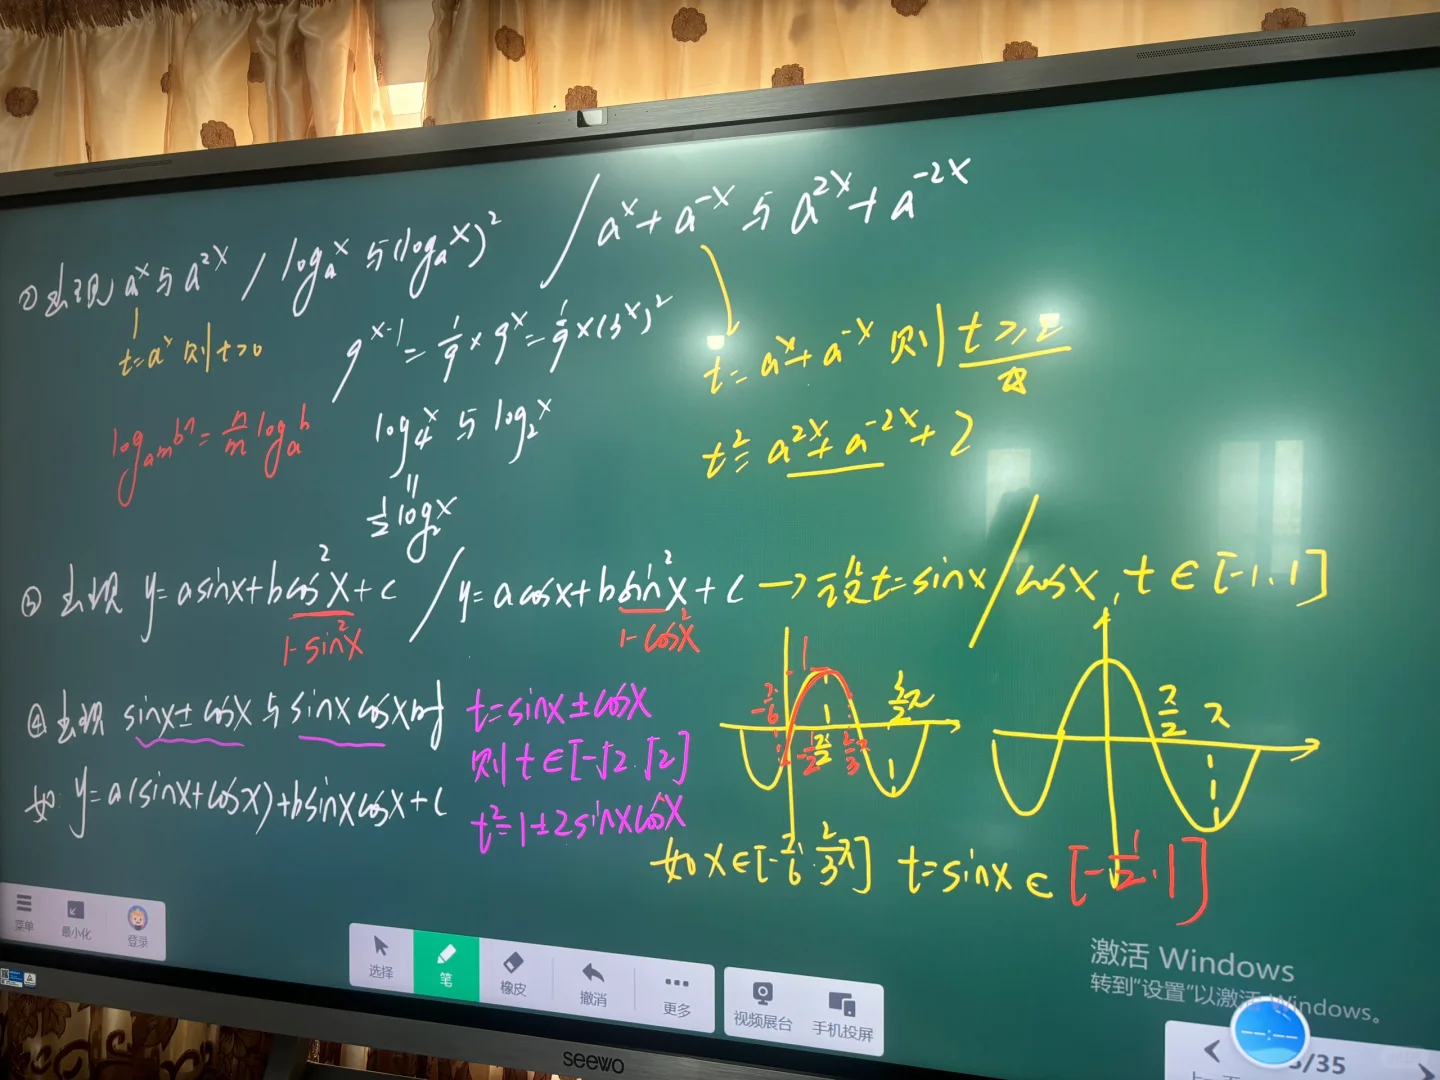 ② 出现 aˣ 与 a²ˣ / logₐx 与 (logₐx)² / aˣ + a⁻ˣ 与 a²ˣ + a⁻²ˣ
t = aˣ 则 t>0
9ˣ⁻¹ = 1/9 × 9ˣ = 1/9 × (3ˣ)²
t = aˣ + a⁻ˣ 则 t ≥ 2
log_{aᵐ} bⁿ = n/m logₐb
log₄x 与 log₂x
t² = a²ˣ + a⁻²ˣ + 2
"
1/2 log₂x
③ 出现 y = asinx + bcos²x + c / y = acosx + bsin²x + c → 设 t = sinx / cosx, t ∈ [-1, 1]
1 - sin²x
1 - cos²x
④ 出现 sinx ± cosx 与 sinxcosx 时
t = sinx ± cosx
则 t ∈ [-√2, √2]
如: y = a(sinx + cosx) + bsinxcosx + c
t² = 1 ± 2sinxcosx
1
-π/6
-1/2
π/2
2/3 π
3/2 π
π/2
π
如 x ∈ [-π/6, 2/3 π] t = sinx ∈ [-1/2, 1]
菜单
最小化
登录
选择
笔
橡皮
撤消
更多
视频展台
手机投屏
激活 Windows
转到"设置"以激活 Windows。
/35
seewo